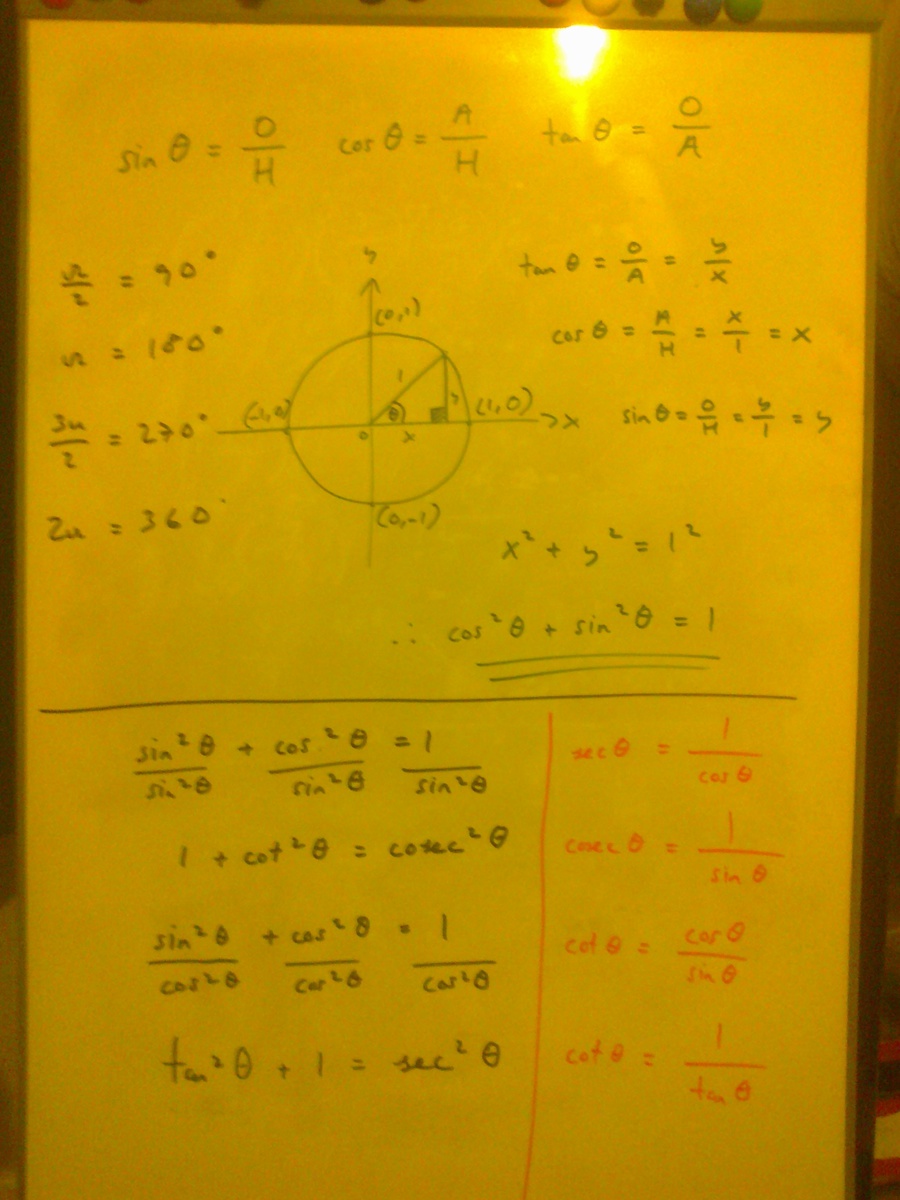 sin θ = O/H cos θ = A/H tan θ = O/A
π/2 = 90°
π = 180°
3π/2 = 270°
2π = 360°
y
(0,1)
(-1,0)
1
θ
y
(1,0)
x
0
x
(0,-1)
tan θ = O/A = y/x
cos θ = A/H = x/1 = x
sin θ = O/H = y/1 = y
x² + y² = 1²
∴ cos²θ + sin²θ = 1
sin²θ/sin²θ + cos²θ/sin²θ = 1/sin²θ
1 + cot²θ = cosec²θ
sin²θ/cos²θ + cos²θ/cos²θ = 1/cos²θ
tan²θ + 1 = sec²θ
sec θ = 1/cos θ
cosec θ = 1/sin θ
cot θ = cos θ/sin θ
cot θ = 1/tan θ